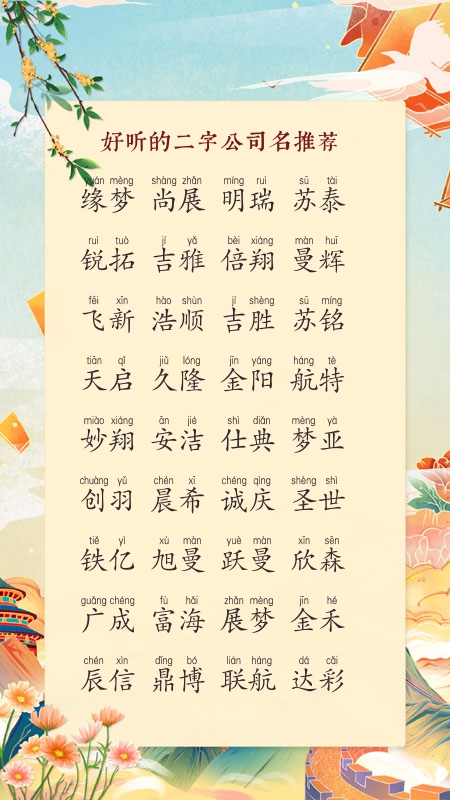 好听的二字公司名推荐
yuán mèng shàng zhǎn míng ruì sū tài
缘梦 尚展 明瑞 苏泰
ruì tuò jí yǎ bèi xiáng màn huī
锐拓 吉雅 倍翔 曼辉
fēi xīn hào shùn jí shèng sū míng
飞新 浩顺 吉胜 苏铭
tiān qǐ jiǔ lóng jīn yáng háng tè
天启 久隆 金阳 航特
miào xiáng ān jié shì diǎn mèng yà
妙翔 安洁 仕典 梦亚
chuàng yǔ chén xī chéng qìng shèng shì
创羽 晨希 诚庆 圣世
tiě yì xù màn yuè màn xīn sēn
铁亿 旭曼 跃曼 欣森
guǎng chéng fù hǎi zhǎn mèng jīn hé
广成 富海 展梦 金禾
chén xìn dǐng bó lián háng dá cǎi
辰信 鼎博 联航 达彩